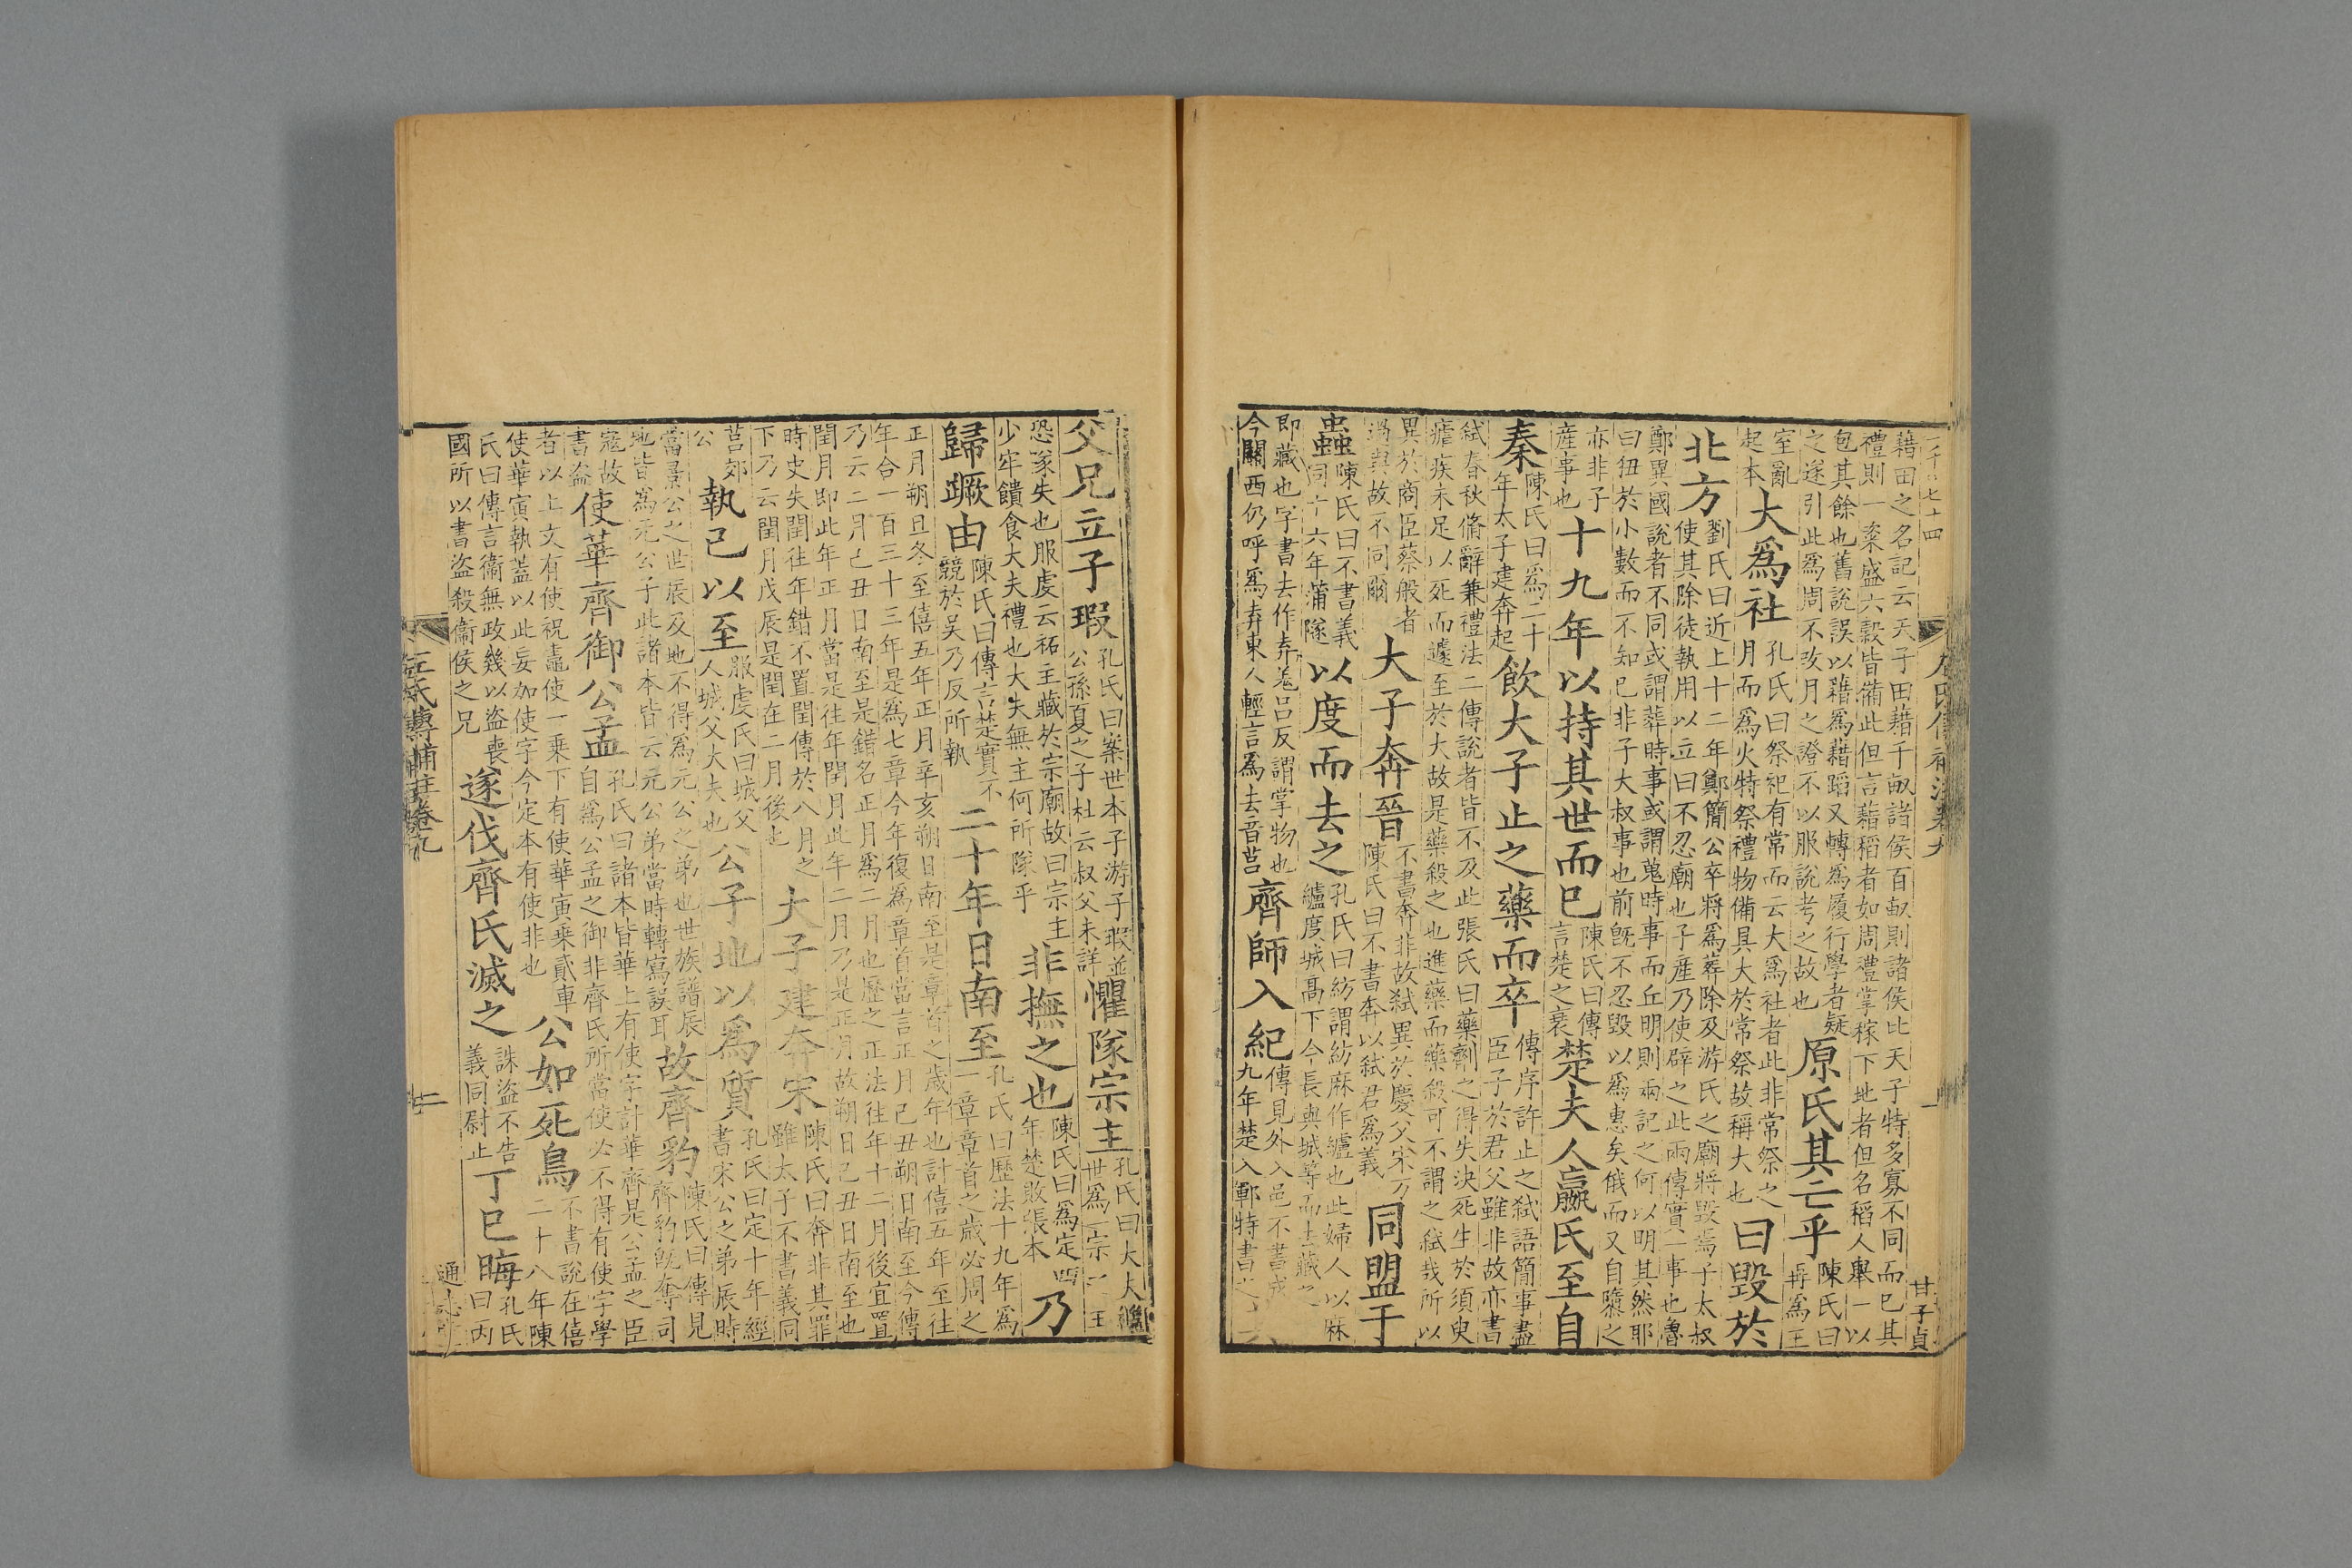 藉田之名記云天子田藉千畝諸侯百畝則諸侯比天子特多寡不同而已其
禮則一粢盛六穀皆備此但言藉稻者如周禮掌稼下地者但名稻人舉一以
包其餘也舊說誤以藉爲藉蹈又轉爲履行學者疑
之遂引此爲周不改月之證不以服說考之故也
原氏其亡乎
陳氏曰
再爲王
室亂
起本
大爲社
孔氏曰祭祀有常而云大爲社者此非常祭之
月而爲火特祭禮物備具大於常祭故稱大也
曰毀於
北方
劉氏曰近上十二年鄭簡公卒將爲葬除及游氏之廟將毀焉子太叔
使其除徒執用以立曰不忍廟也子産乃使辟之此兩傳實一事也魯
鄭異國說者不同或謂葬時事或謂蒐時事而丘明則兩記之何以明其然耶
曰忸於小數而不知已非子大叔事也前旣不忍毀以爲惠矣俄而又自隳之
亦非子
産事也
十九年以持其世而已
陳氏曰傳
言楚之衰
楚夫人嬴氏至自
秦
陳氏曰爲二十
年太子建奔起
飲大子止之藥而卒
傳序許止之弑語簡事盡
臣子於君父雖非故亦書
弑春秋脩辭兼禮法二傳說者皆不及此張氏曰藥劑之得失決死生於須臾
瘧疾未足以死而遽至於大故是藥殺之也進藥而藥殺可不謂之弑哉所以
異於商臣蔡般者
過與故不同爾
大子奔晉
不書奔非故弑異於慶父宋万
陳氏曰不書奔以弑君爲義
同盟于
蟲
陳氏曰不書義
同十六年蒲隧
以度而去之
孔氏曰紡謂紡麻作纑也此婦人以麻
纑度城高下令長與城等而去藏之
即藏也字書去作弆羌呂反謂掌物也
今關西仍呼爲弆東人輕言爲去音莒
齊師入紀
傳見外入邑不書成
九年楚入鄆特書之
父兄立子瑕
孔氏曰案世本子游子瑕並
公孫夏之子杜云叔父未詳
懼隊宗主
孔氏曰大夫繼
世爲一宗之主
恐隊失也服虔云祏主藏於宗廟故曰宗主
少牢饋食大夫禮也大夫無主何所隊乎
非撫之也
陳氏曰爲定四
年楚敗張本
乃
歸蹶由
陳氏曰傳言楚實不
競於吳乃反所執
二十年日南至
孔氏曰歷法十九年爲
一章章首之歲必周之
正月朔旦冬至僖五年正月辛亥朔日南至是章首之歲年也計僖五年至往
年合一百三十三年是爲七章今年復爲章首當言正月己丑朔日南至今傳
乃云二月己丑日南至是錯名正月爲二月也歷之正法往年十二月後宜置
閏月即此年正月當是往年閏月此年二月乃是正月故朔日己丑日南至也
時史失閏往年錯不置閏傳於八月之
下乃云閏月戊辰是閏在二月後也
大子建奔宋
陳氏曰奔非其罪
雖太子不書義同
莒郊
公
執已以至
服虔氏曰城父
人城父大夫也
公子地以爲質
孔氏曰定十年經
書宋公之弟辰時
當景公之世辰及地不得爲元公之弟也世族譜辰
地皆爲元公子此諸本皆云元公弟當時轉寫誤耳
故齊豹
陳氏曰傳見
齊豹旣奪司
寇故
書盜
使華齊御公孟
孔氏曰諸本皆華上有使字計華齊是公孟之臣
自爲公孟之御非齊氏所當使必不得有使字學
者以上文有使祝鼃使一乗下有使華寅乗貳車
使華寅執蓋以此妄加使字今定本有使非也
公如死鳥
不書說在僖
二十八年陳
氏曰傳言衞無政幾以盜喪
國所以書盜殺衞侯之兄
遂伐齊氏滅之
誅盜不告
義同尉止
丁巳晦
孔氏
曰丙
左氏傳補註卷九